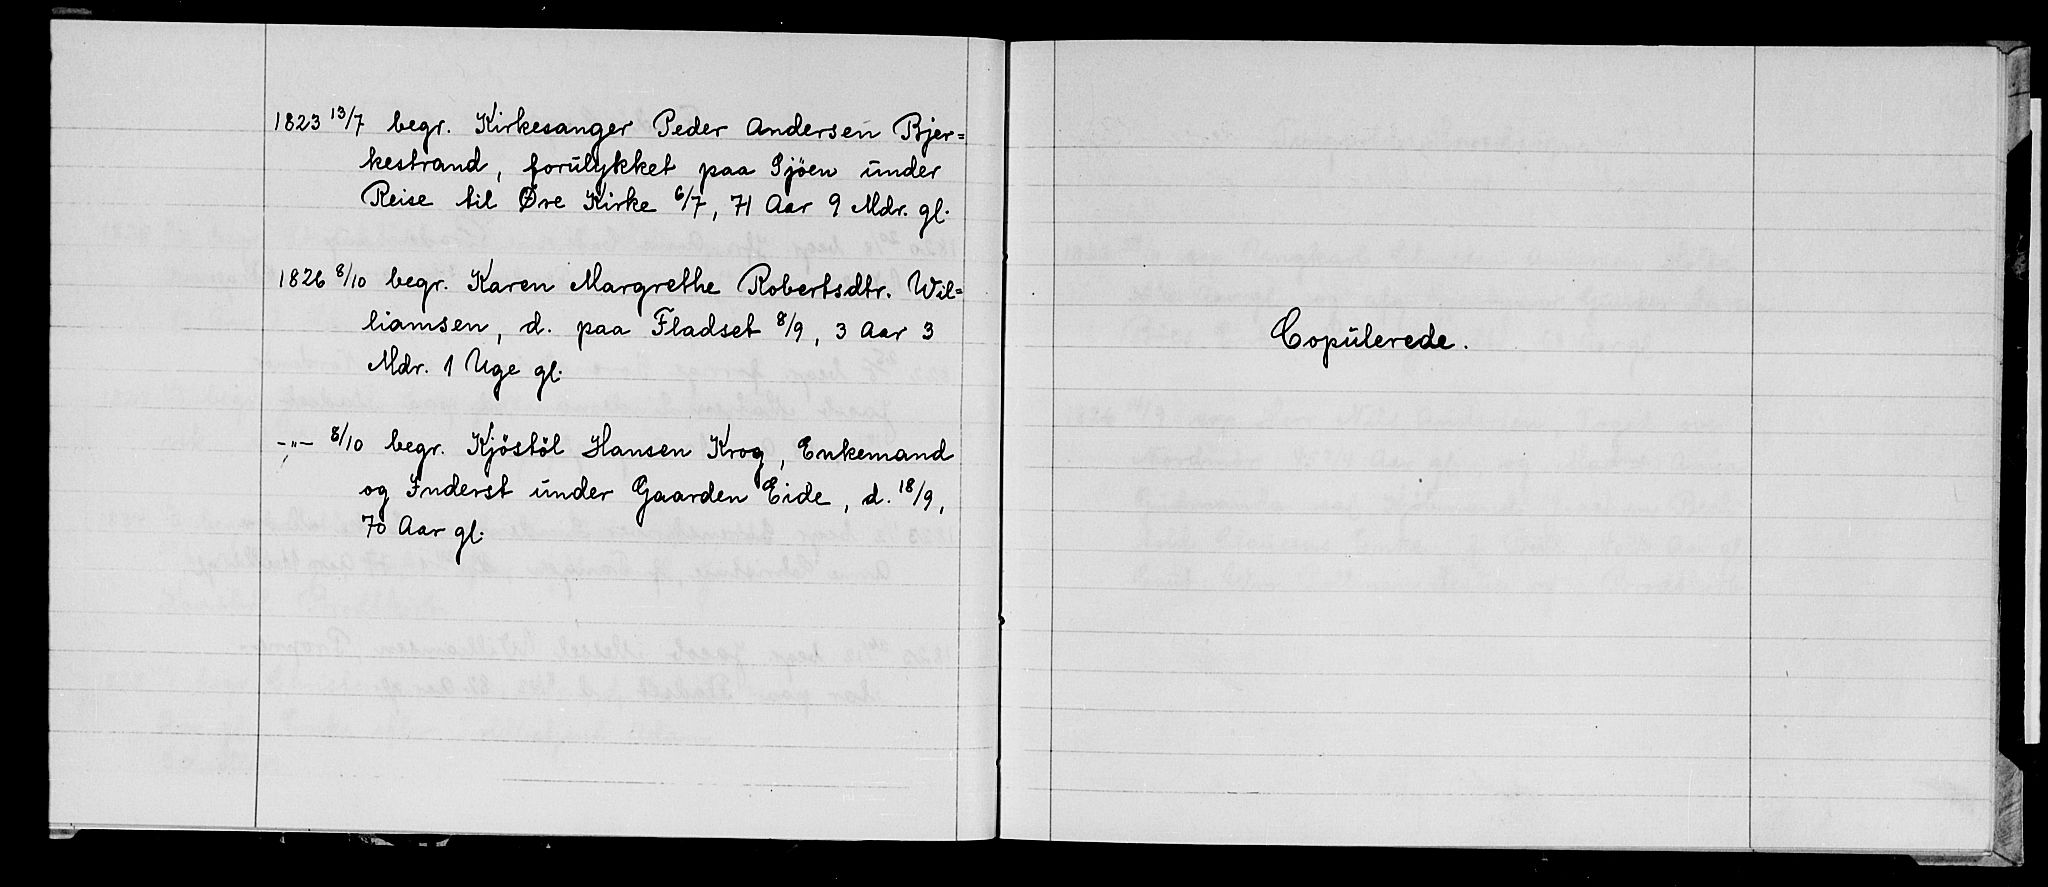 1823 13/7 begr. Kirkesanger Peder Andersen Bjer=
kestrand, forulykket paa Sjöen under
Reise til Øre Kirke 6/7, 71 Aar 9 Mdr. gl.
1826 8/10 begr. Karen Margrethe Robertsdtr. Wil=
liamsen, d. paa Fladset 8/9, 3 Aar 3
Mdr. 1 Uge gl.
-"- 8/10 begr. Kjöstöl Hansen Krog, Enkemand
og Inderst under Gaarden Eide, d. 18/9,
70 Aar gl.
Copulerede.